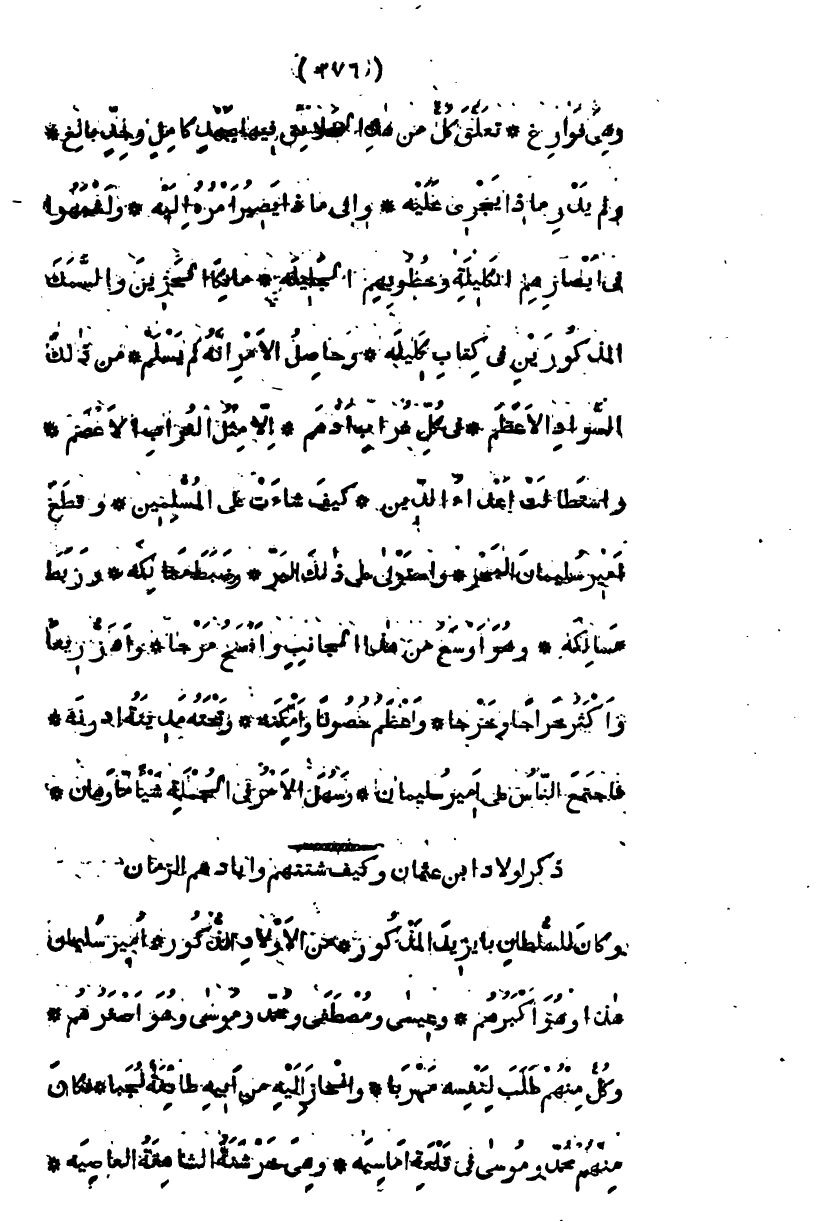 (٣٧٦)
وهِيَ فَوَارِغ * تعَلَّقَ كُلٌّ مِن هٰذِهِ الخلائِقِ فيها بجَهْدٍ كامِلٍ وجِدٍّ بالِغ *
ولم يَدْرِ ما ذا يَجْرِى عَلَيْه * وإلى ما ذا يَصِيرُ أمْرُهُ إلَيْه * ولَقْمَتْهُوا
فى أبْصارِهِم الكَلِيلَةِ وخُطُوبِهِم الجَلِيلَه * مالِكًا الحَزِينَ والسَّمَكَ
المذكُورَيْنِ فى كِتابِ كَلِيلَه * وحاصِلُ الأمْرِ أنَّهُ لم يَسْلَم * مِن ذٰلِكَ
السَّوادِ الأعْظَم * فى كُلِّ غُرابٍ أدْهَم * إلّا مِثْلُ الغُرابِ الأعْصَم *
واسْتَطالَتْ أعْداءُ الدِّين * كيفَ شاءَتْ على المُسْلِمِين * وقطَعَ
أمير سُليمان البَحْر * واستَوْلى على ذٰلكَ البَرّ * وضَبَطَ مَمالِكَه * ورَبَطَ
مَسالِكَه * وهُوَ أوسَعُ مِن هٰذا الجانِبِ وأفْسَحُ مَرْجا * وأعَزُّ رَيْعًا
وأكْثَرُ خَراجًا وخَرْجا * وأعْظَمُ حُصُونًا وأمْكِنَه * وتَخْتُه مَدِينَةُ ادرنَة *
فاجتَمَعَ النّاسُ على أمير سُليمان * وسَهُلَ الأمْرُ فى الجُمْلَةِ شَيْأً مّا وهان *
ذكر اولاد ابن عثمان وكيف شتتهم وابادهم الزمان
وكانَ للسُّلطانِ بايزيدَ المَذْكُور * مِنَ الأوْلادِ الذُّكُور * أمير سُليمان
هٰذا وهُوَ أكْبَرُهُم * وعِيسٰى ومُصْطَفَى ومُحمَّد ومُوسٰى وهُوَ أصْغَرُهُم *
وكُلٌّ مِنْهُمْ طَلَبَ لِنَفْسِه مَهْرَبا * وانْحازَ إلَيْهِ مِن أبيهِ طائِفَةٌ نُجَبا * فكانَ
مِنْهُم مُحمَّد ومُوسٰى فى قَلْعَةِ اماسِيَه * وهِيَ خَرْشَنَةُ الشاهِقَةُ العاصِيَه *